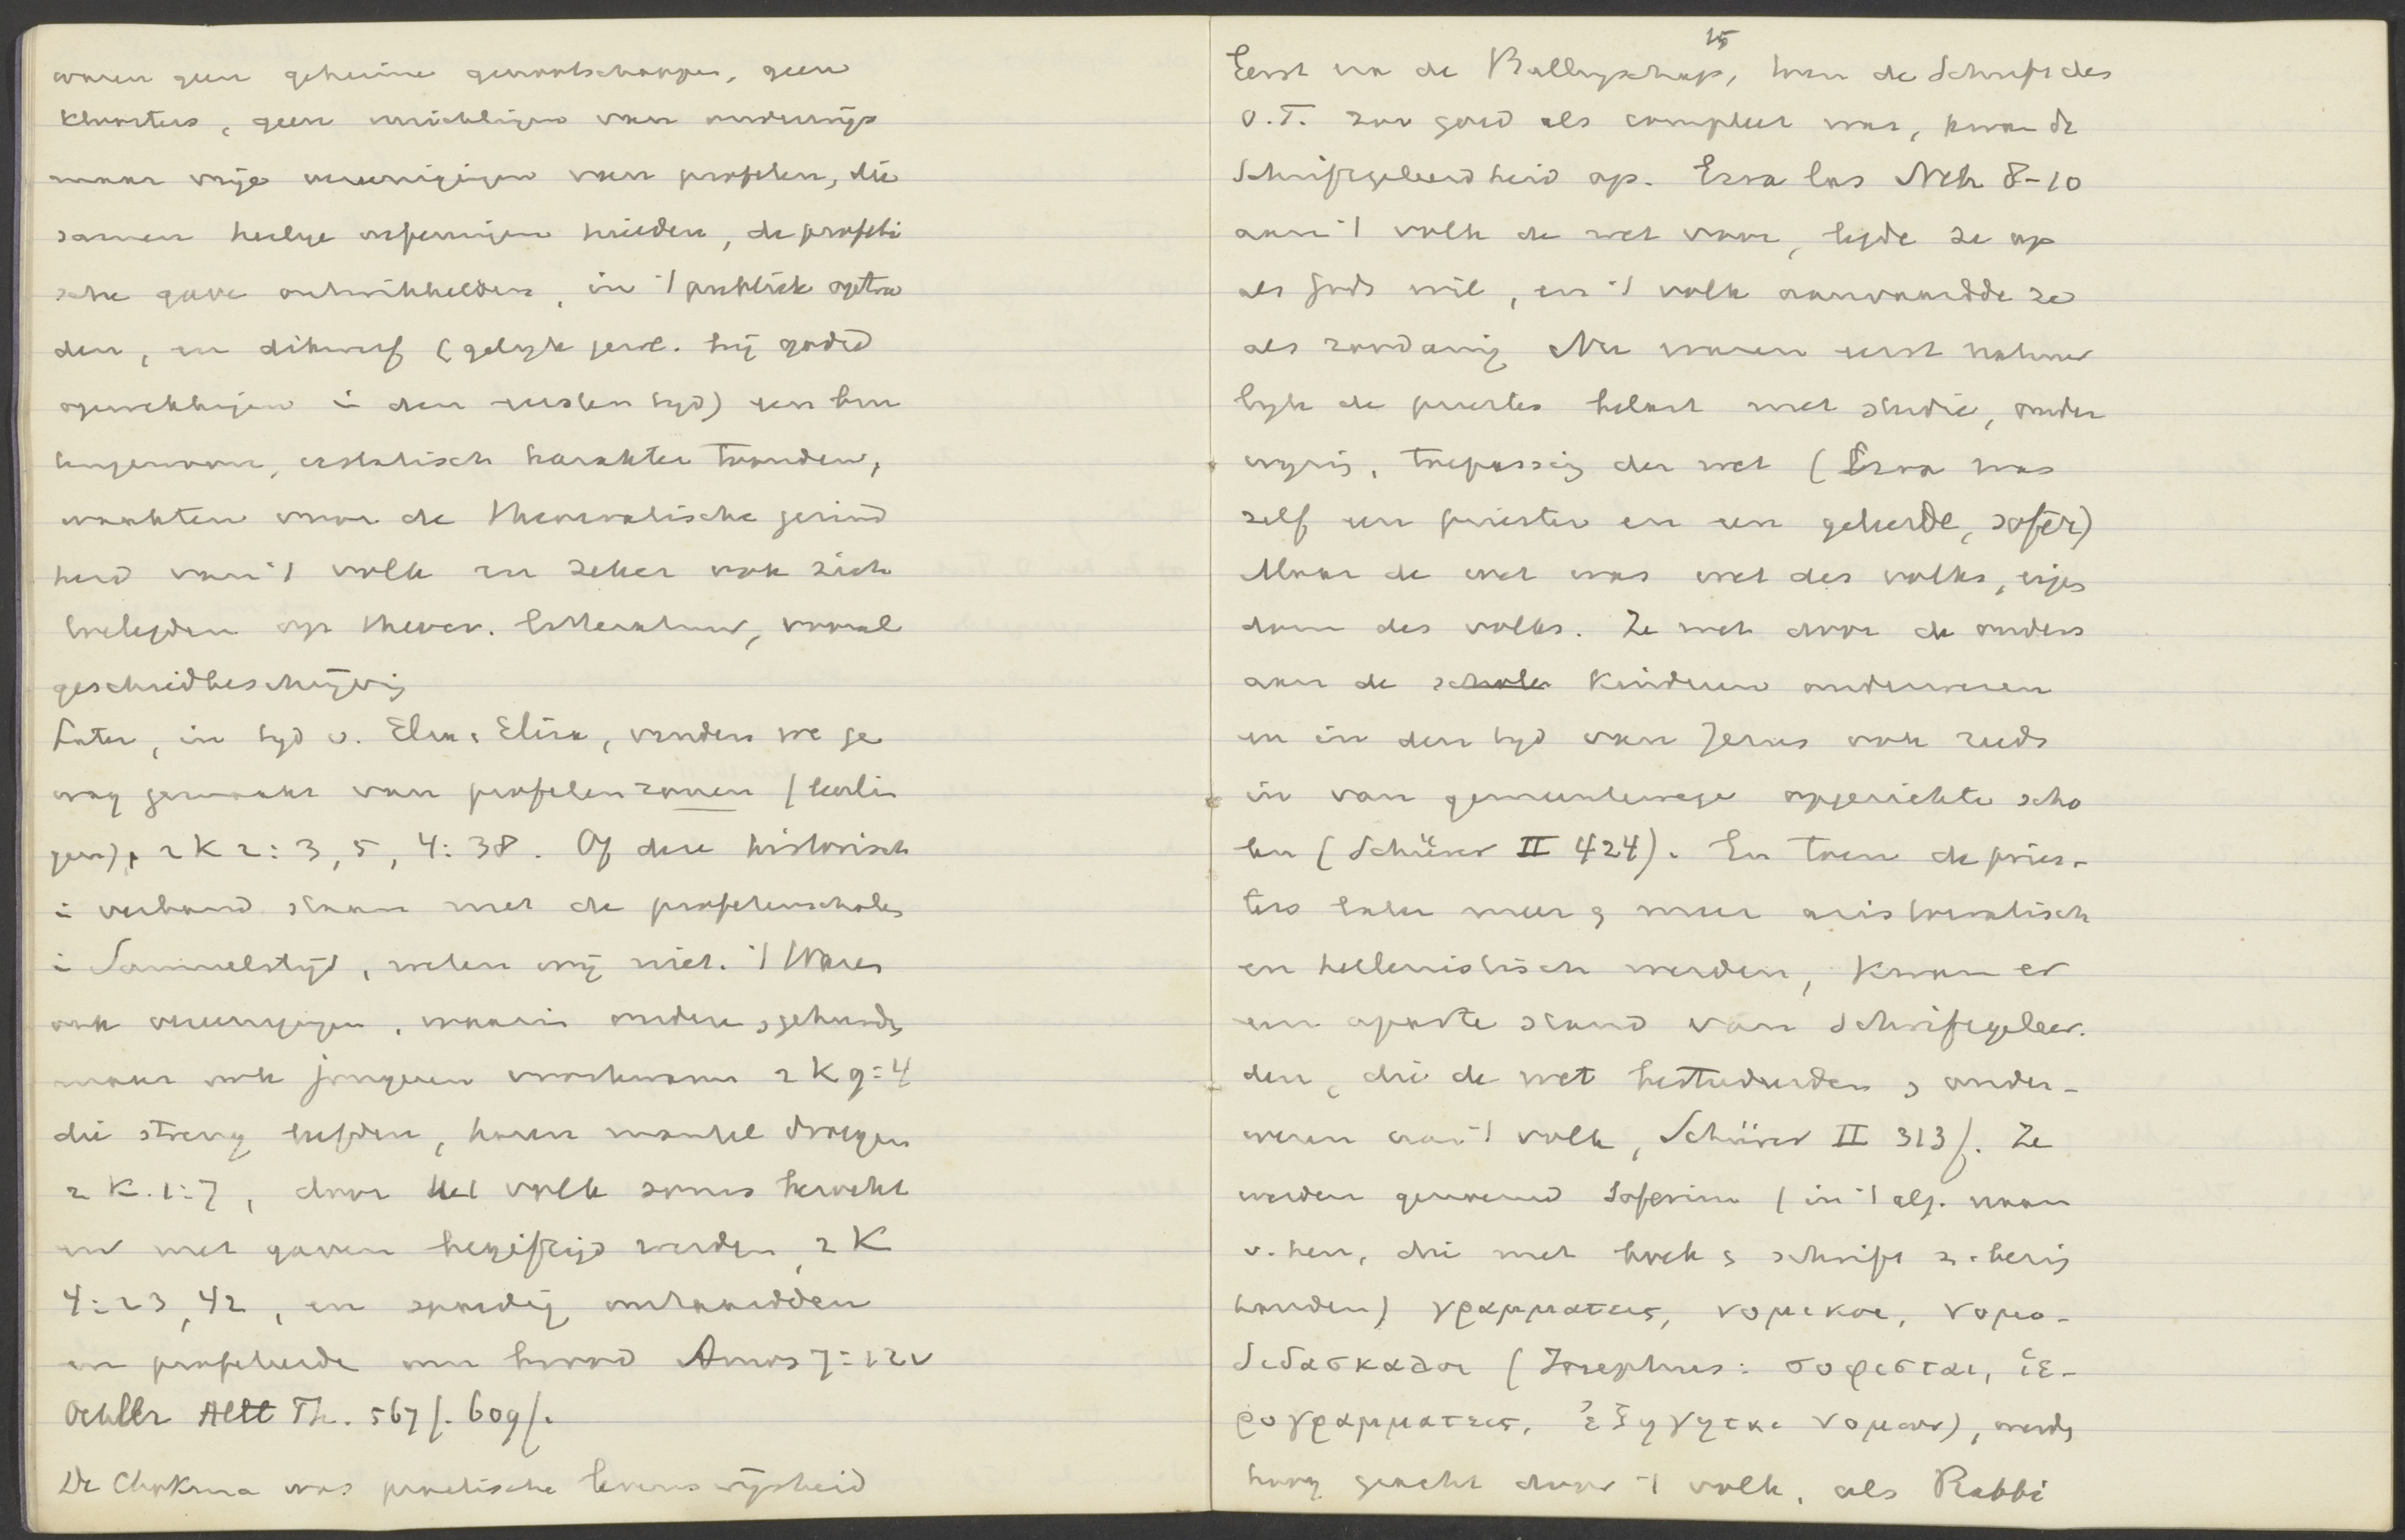 waren geen geheime genootschappen, geen
kloosters, geen inrichtingen van onderwijs
maar vrije vereenigingen van profeten, die
samen heilige oefeningen hielden, de profeti
sche gave ontwikkelden, in 't publiek optra
den, en dikwerf (gelijk  bij godsd
opwekkingen i den eersten tijd) een bui
tengewoon, extatisch karakter droegen,
waakten voor de theocratische gezind
heid van 't volk en zeker ook zich
toelegden op theocr. litteratuur, vooral
geschiedbeschrijving
Later, in tijd v. Elia & Elisa, vinden we ge
wag gemaakt van profetenzonen (leerlin
gen), 2 K 2:3, 5, 4:38. Of deze historisch
i verband staan met de profetenscholen
i Samuelstijd, weten wij niet. 't Waren
ook vereenigingen, waarin oudere, gehuwde,
maar ook jongeren voorkwamen 2 K 9:4
die streng leefden, haren mantel droegen
2 K. 1:7, door het volk soms bezocht
en met gaven begiftigd werden, 2 K
4:23, 42, en spoedig ontaardden
en profeteerde om brood Amos 7:12v
Oehler Altt Th. 567f. 609f.
De Chokma was practische levenswijsheid
15
Eerst na de Ballingschap, toen de Schrift des
O.T. zoo goed als compleet was, kwam de
Schriftgeleerdheid op. Ezra las Neh 8-10
aan 't volk de wet voor, legde ze op
als Gods wil, en 't volk aanvaardde ze
als zoodanig. Nu waren eerst natuur
lijk de priesters belast met studie, onder
wijs, toepassing der wet (Ezra was
zelf een priester en een geleerde, sofer)
Maar de wet was wet des volks, eigen
dom des volks. Ze werd door de ouders
aan de scholen kinderen onderwezen
en in den tijd van Jezus ook reeds
in van gemeentewege opgerichte scho
len (Schürer II 424). En toen de pries-
ters later meer & meer aristocratisch
en hellenistisch werden, kwam er
een aparte stand van Schriftgeleer.
den, die de wet bestudeerden & onder-
wezen aan 't volk, Schürer II 313f. Ze
werden genoemd Soferim (in 't alg. naam
v. hen, die met boek & schrift z. bezig
houden) γραμματεις, νομικοι, νομο-
διδασκαλοι (Josephus: σοφισται, ἱε-
ρογραμματεις, ἐξηγηται νομων), werden
hoog geacht door 't volk, als Rabbi